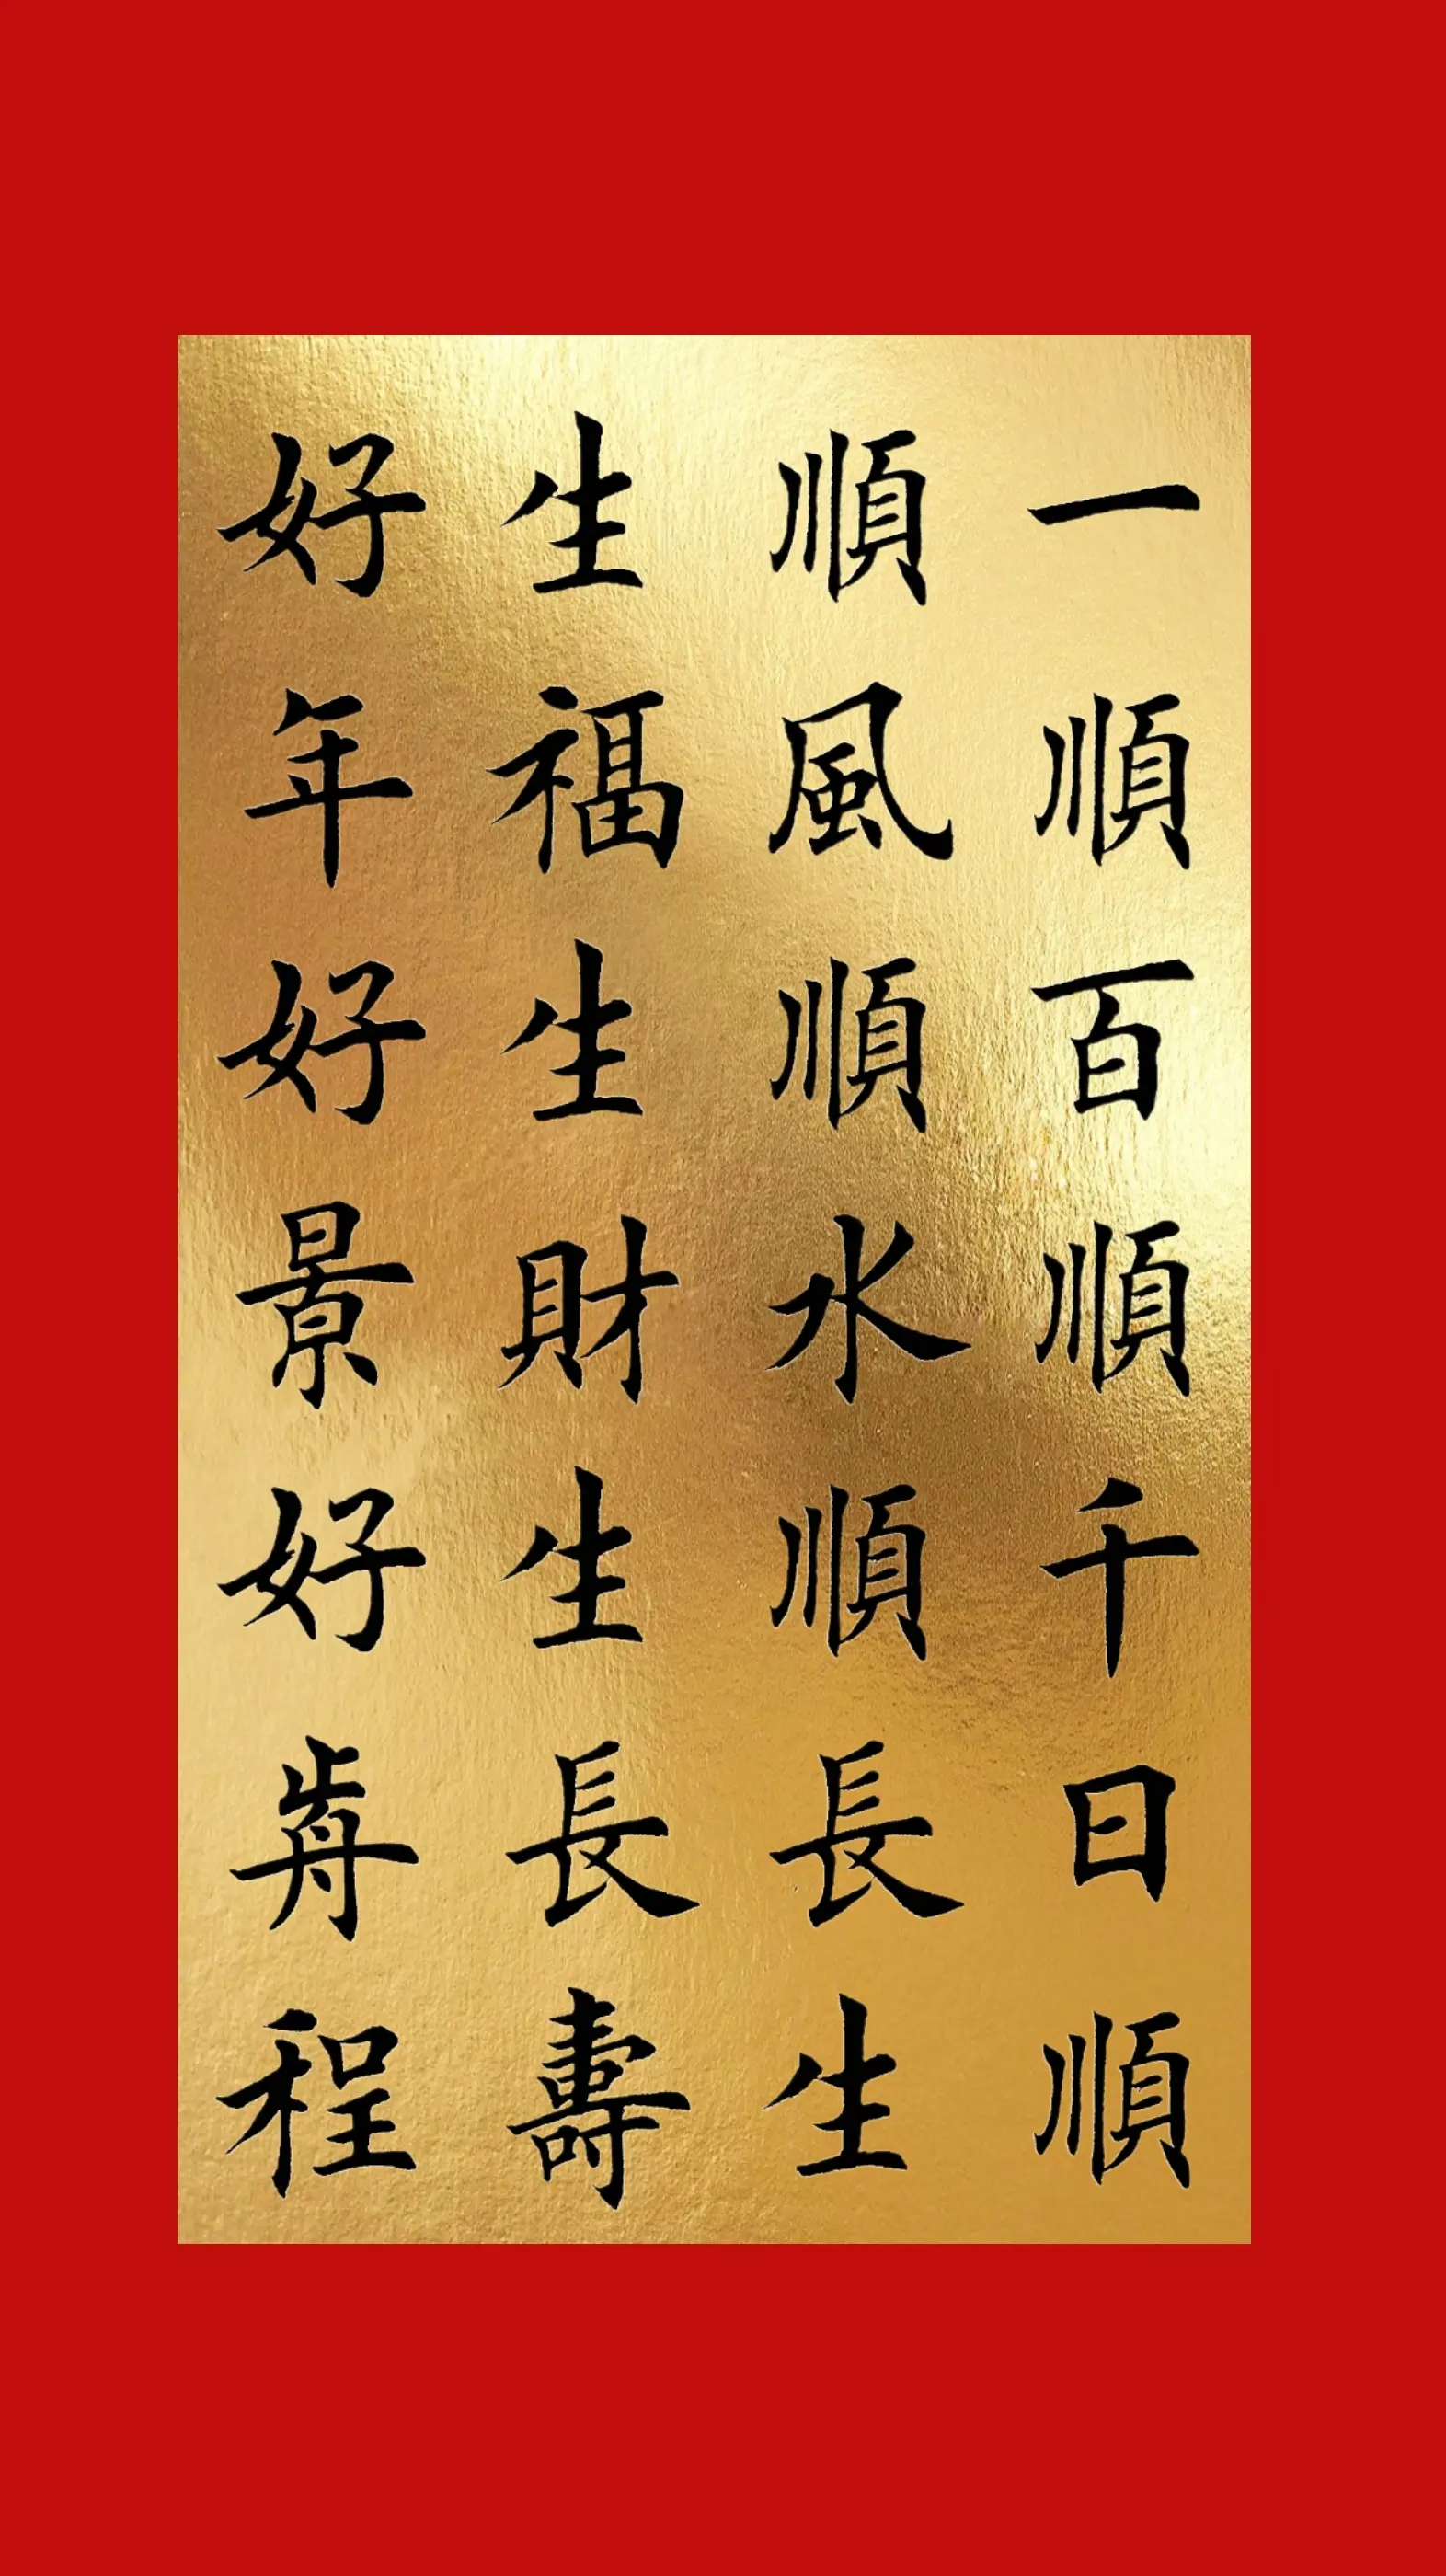 一順百順千日順
順風順水順長生
生福生財生長壽
好年好景好歬程